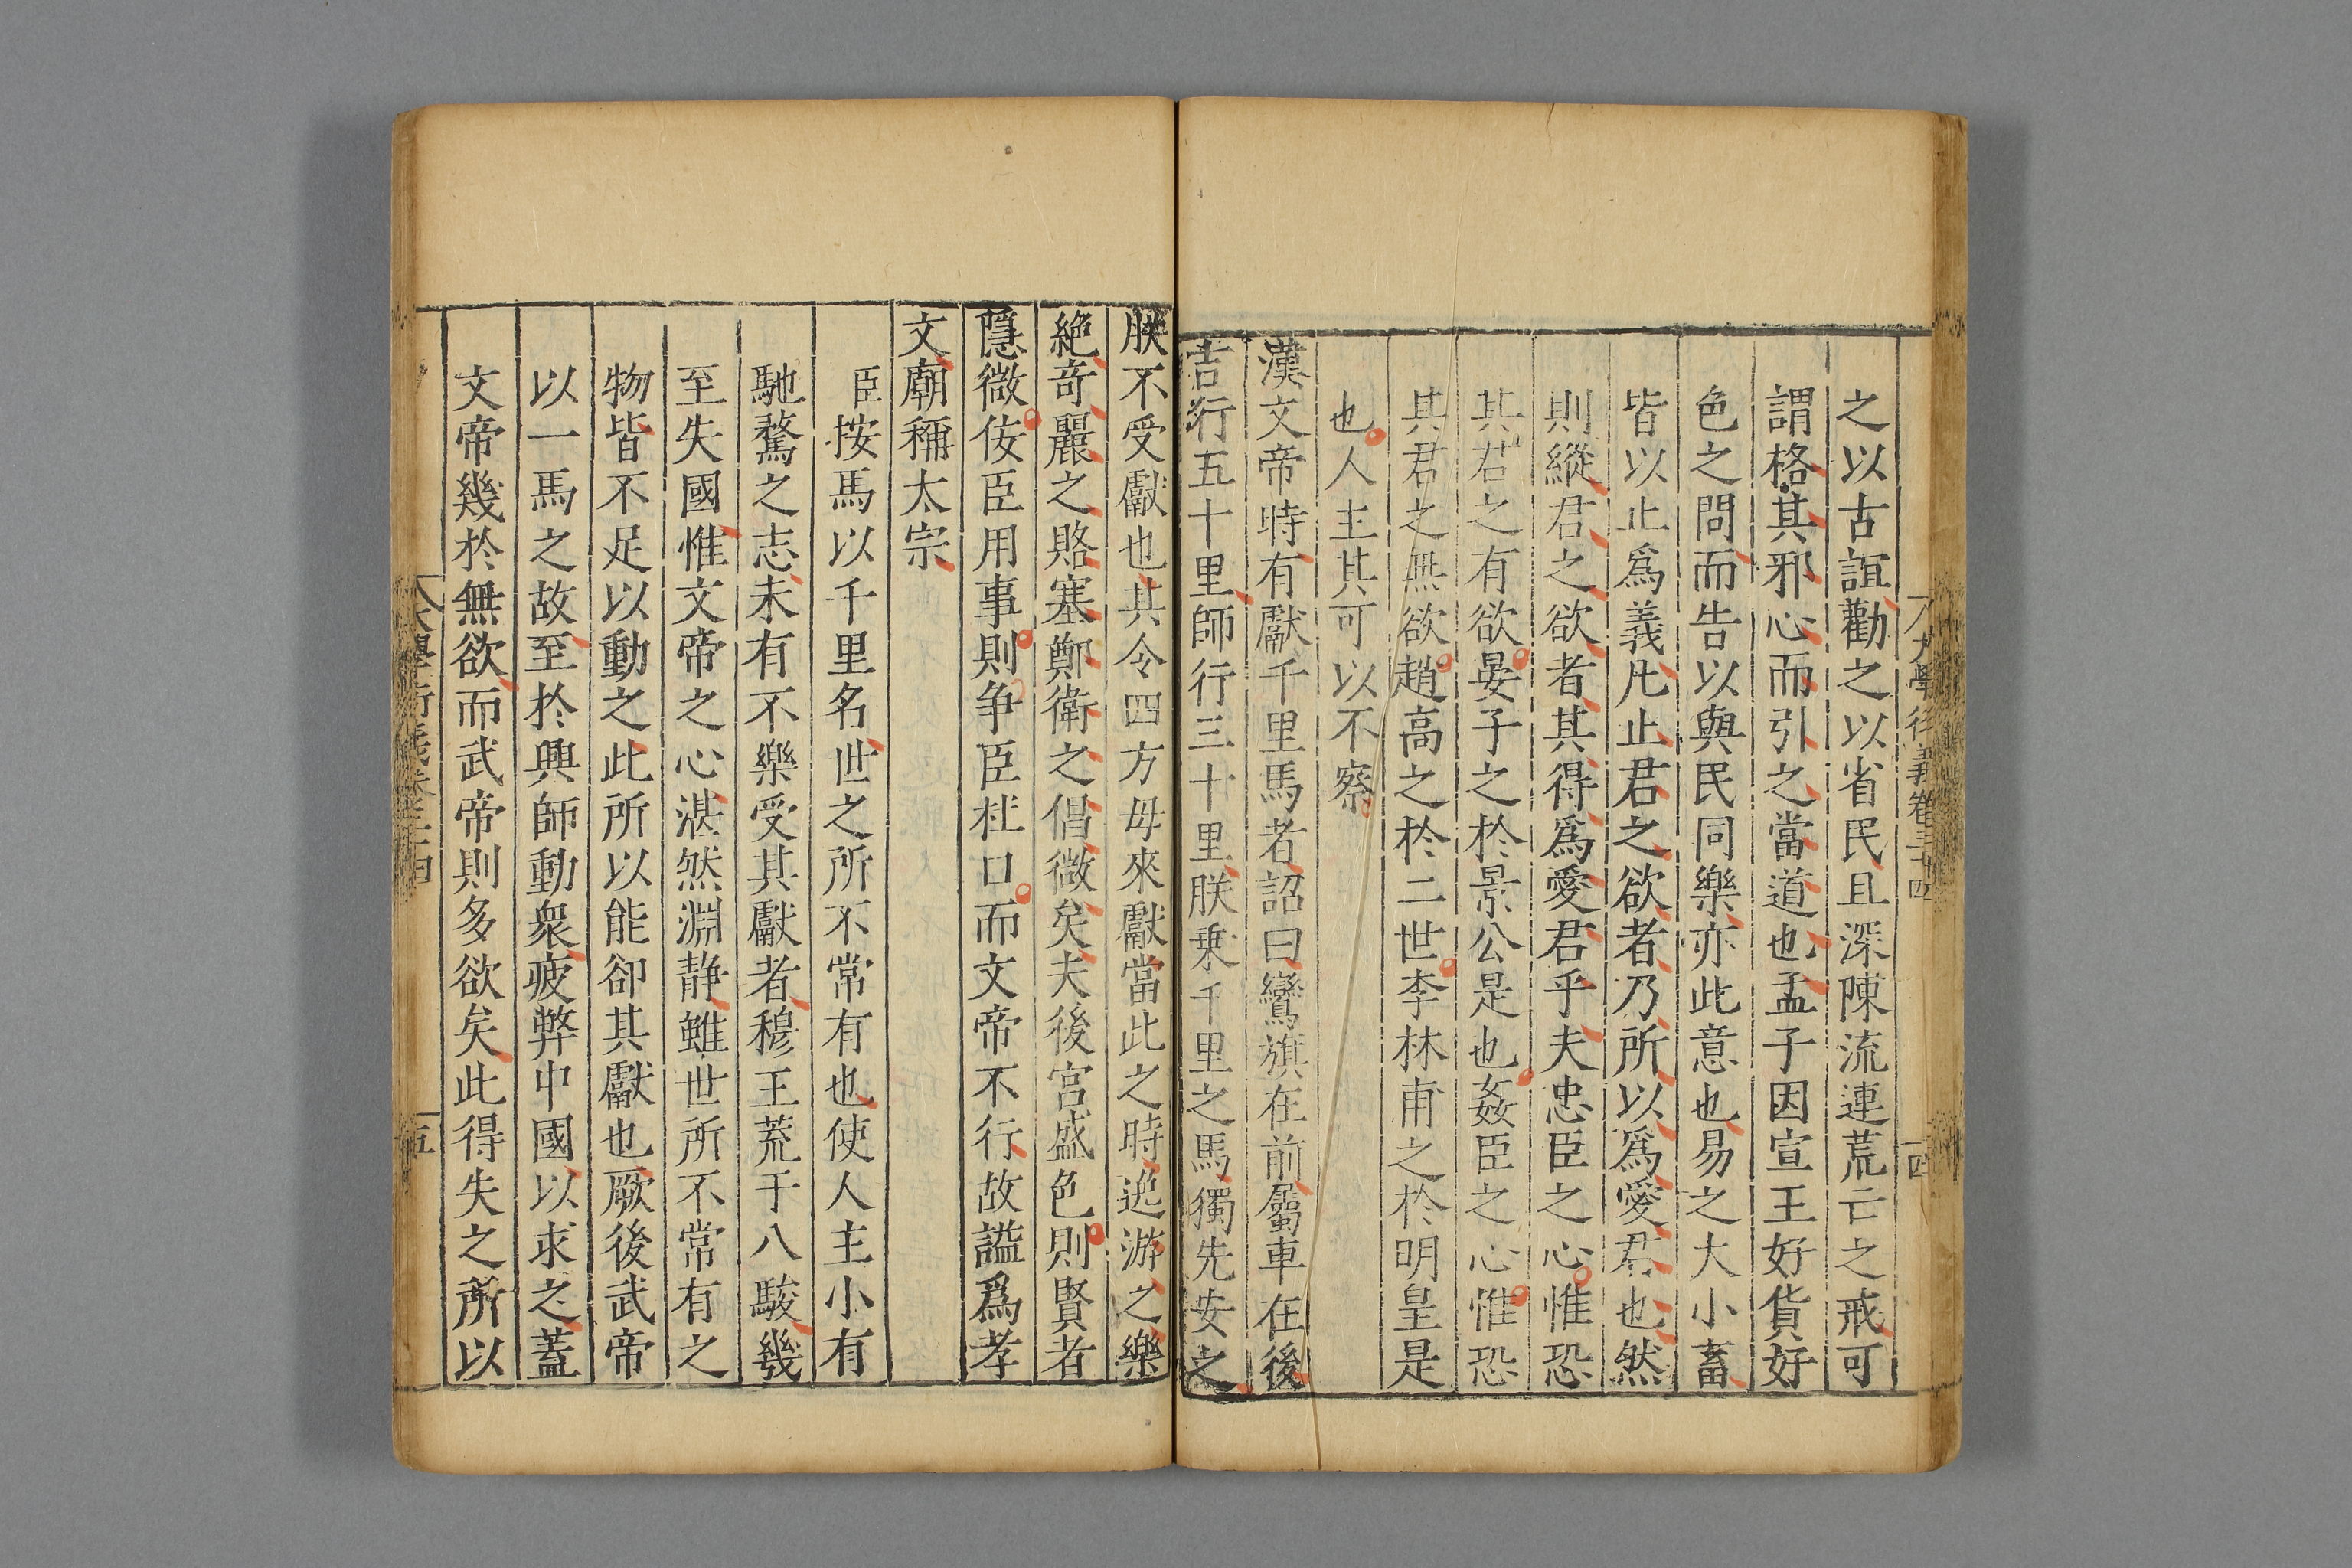 大學衍義卷三十四
四
之以古誼勸之以省民且深陳流連荒亡之戒可
謂格其邪心而引之當道也孟子因宣王好貨好
色之問而告以與民同樂亦此意也易之大小畜
皆以止爲義凡止君之欲者乃所以爲愛君也然
則縱君之欲者其得爲愛君乎夫忠臣之心惟恐
其君之有欲晏子之於景公是也姦臣之心惟恐
其君之無欲趙高之於二世李林甫之於明皇是
也人主其可以不察
漢文帝時有獻千里馬者詔曰鸞旗在前屬車在後
吉行五十里師行三十里朕乗千里之馬獨先安之
朕不受獻也其令四方毋來獻當此之時逸游之樂
絶竒麗之賂塞鄭衛之倡微矣夫後宮盛色則賢者
隱微佞臣用事則爭臣杜口而文帝不行故謚爲孝
文廟稱太宗
臣按馬以千里名世之所不常有也使人主小有
馳騖之志未有不樂受其獻者穆王荒于八駿幾
至失國惟文帝之心湛然淵静雖世所不常有之
物皆不足以動之此所以能卻其獻也厥後武帝
以一馬之故至於興師動衆疲弊中國以求之蓋
文帝幾於無欲而武帝則多欲矣此得失之所以
大學衍義卷三十四
五